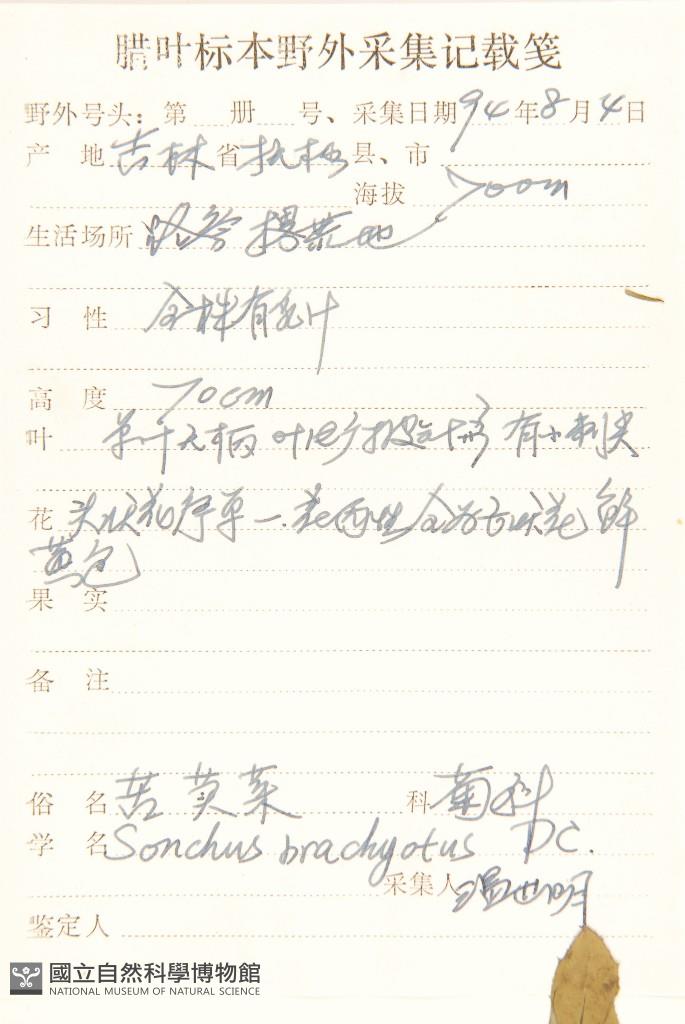 腊叶标本野外采集记载笺
野外号头：第 册 号、采集日期 94 年 8 月 4 日
产 地 吉林 省 扶松 县、市
海拔 700m
生活场所 路旁撂荒地
习 性 全株有乳汁
高 度 70cm
叶 单叶无柄 叶 有小刺尖
花 头状花序单一 花两性 全为舌状花 鲜
黄色
果 实
备 注
俗 名 苦荬菜 科 菊科
学 名 Sonchus brachyotus DC.
采集人 温世明
鉴定人
國立自然科學博物館
NATIONAL MUSEUM OF NATURAL SCIENCE